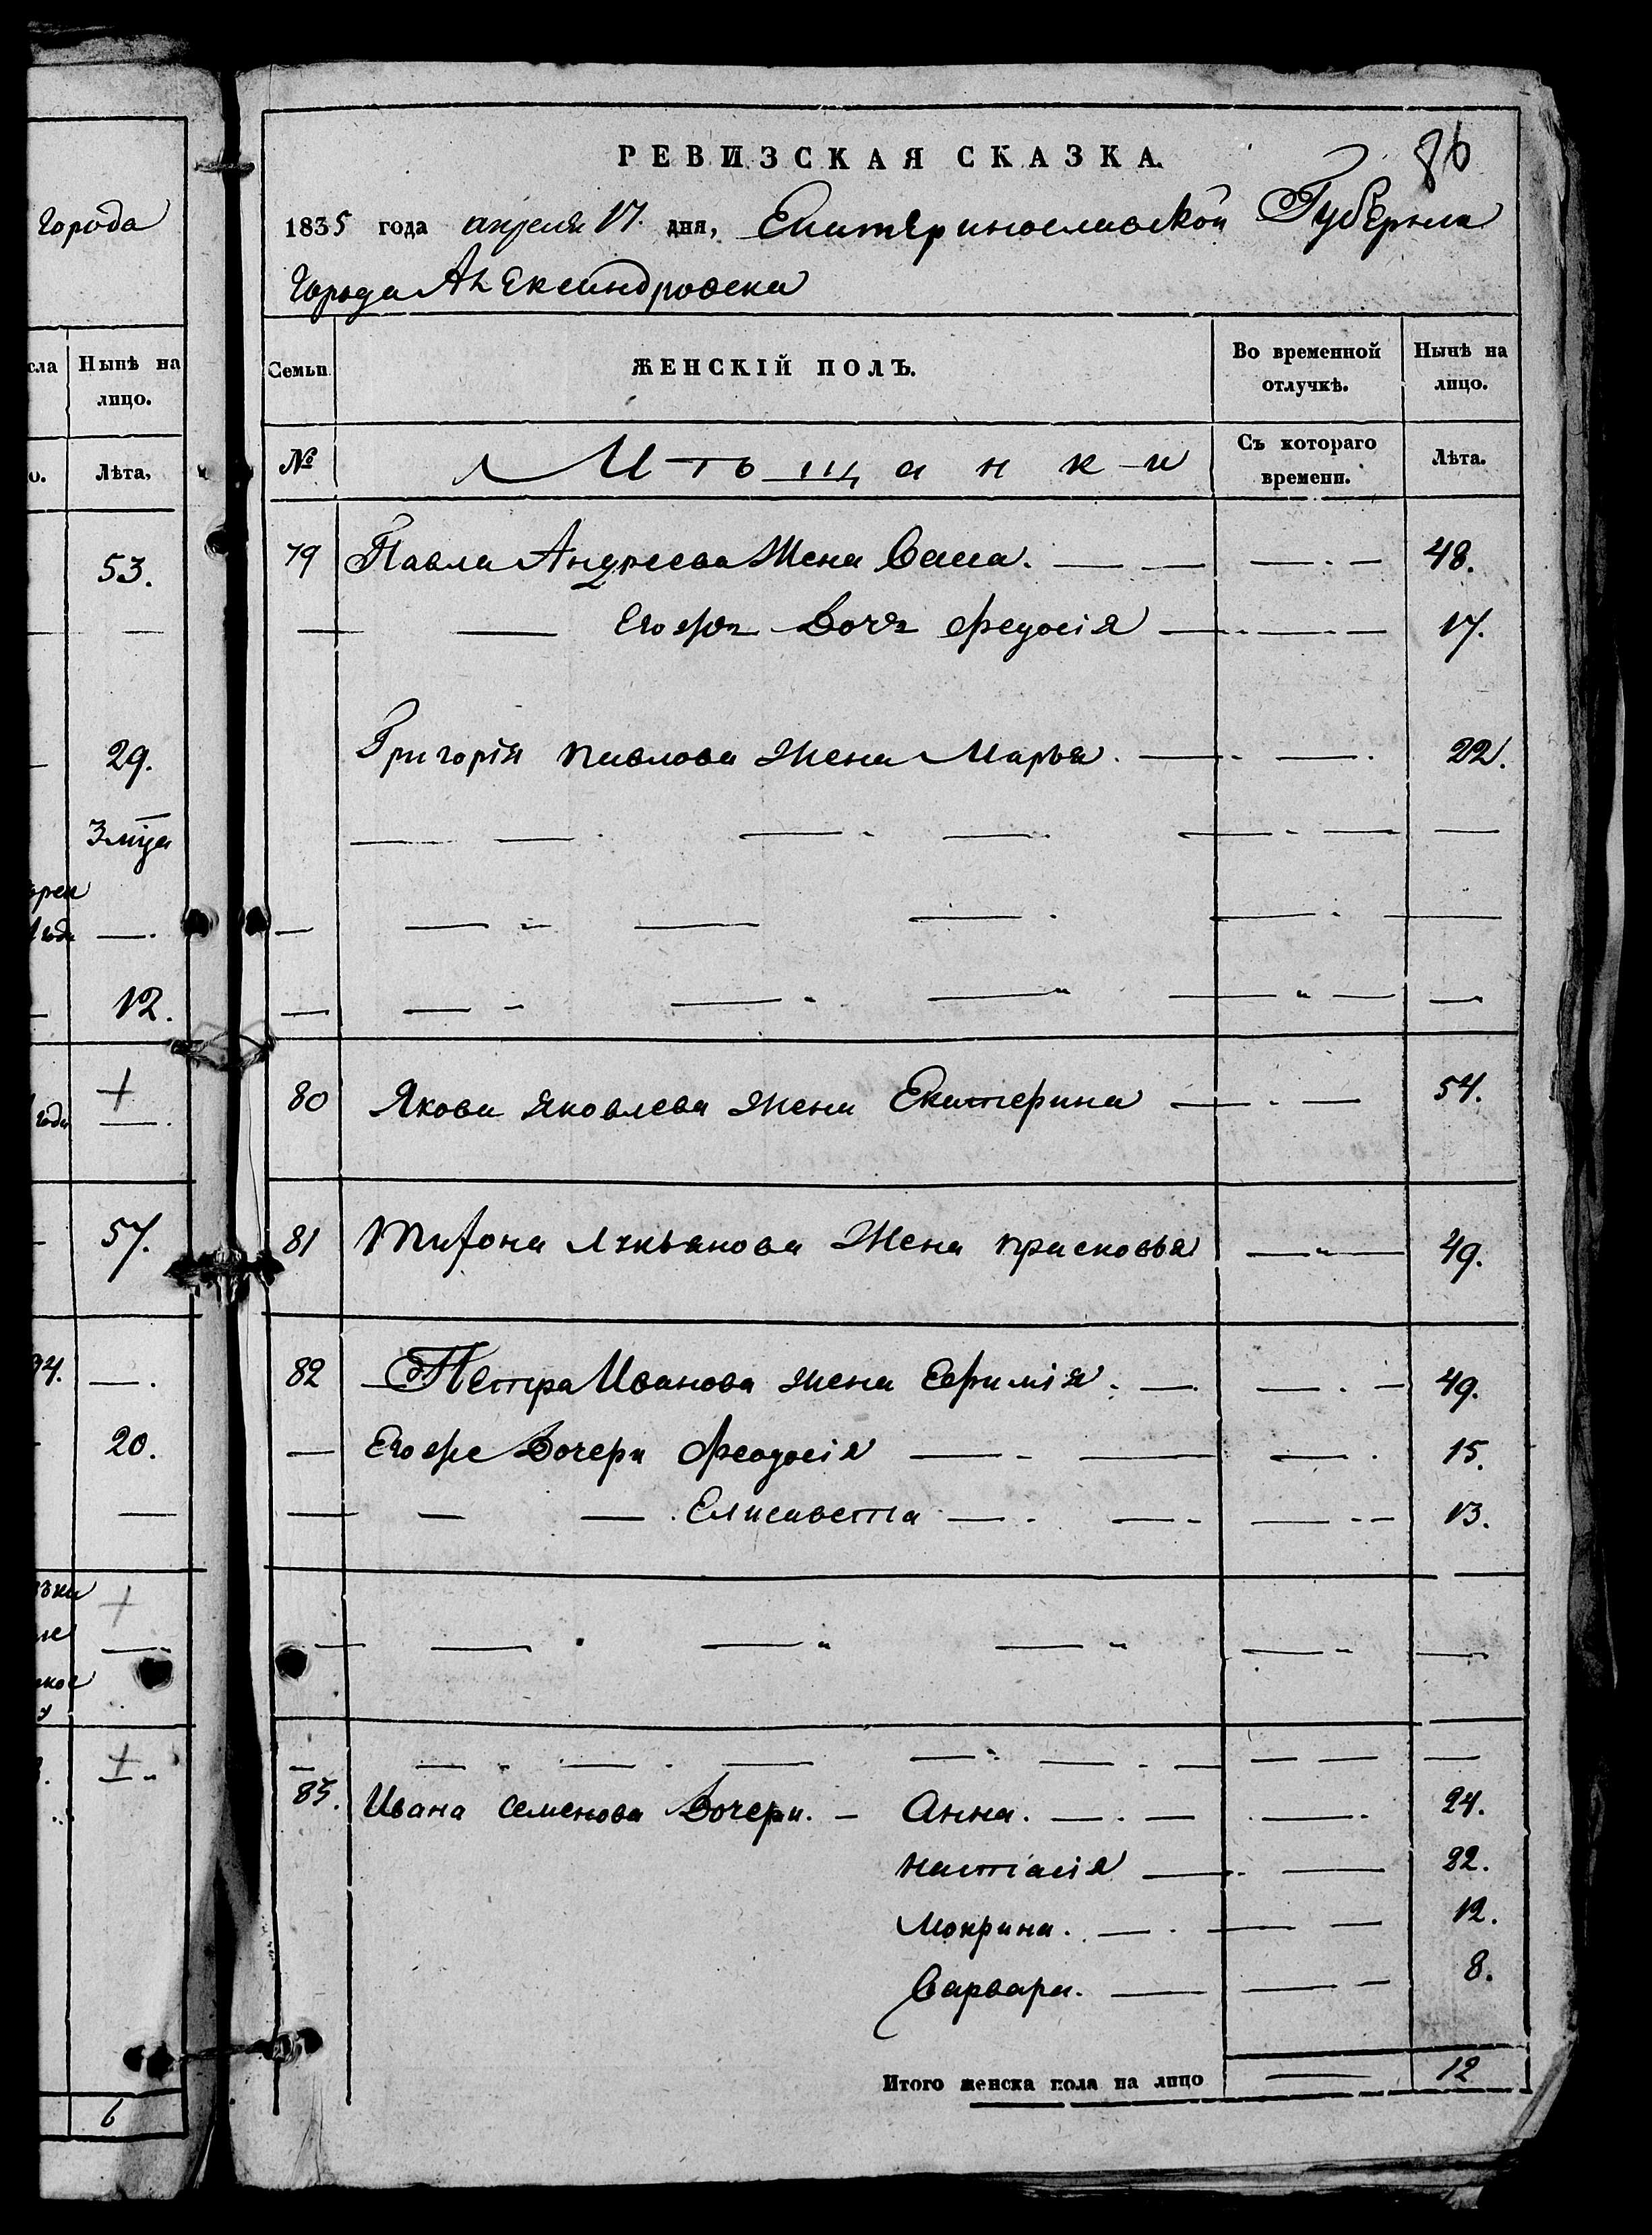 86
РЕВИЗСКАЯ СКАЗКА.
1835 года апреля 17. дня, Екатеринославской Губернии
Города Александровска
Города
Семьи.
ЖЕНСКІЙ ПОЛЪ.
Во временной отлучкѣ.
Нынѣ на лицо.
№
Мѣщанки
Съ котораго времени.
Лѣта.
Нынѣ на лицо.
Лѣта,
79 Павла Андреева Жена Васса. 48.
Его Дочь Федосія 17.
Григорія Павлова Жена Марья. 22.
80 Якова Яковлева жена Екатерина 54.
81 Тифона Лукьянова Жена прасковья 49.
82 Петра Иванова жена Ефимія. 49.
Его же Дочери Феодосія 15.
Елисавета 13.
83. Ивана Семенова Дочери. Анна. 24.
настасія 22.
Мокрина. 12.
Варвара. 8.
Итого женска пола на лицо 12
53.
29.
3 мца
12.
57.
20.
6